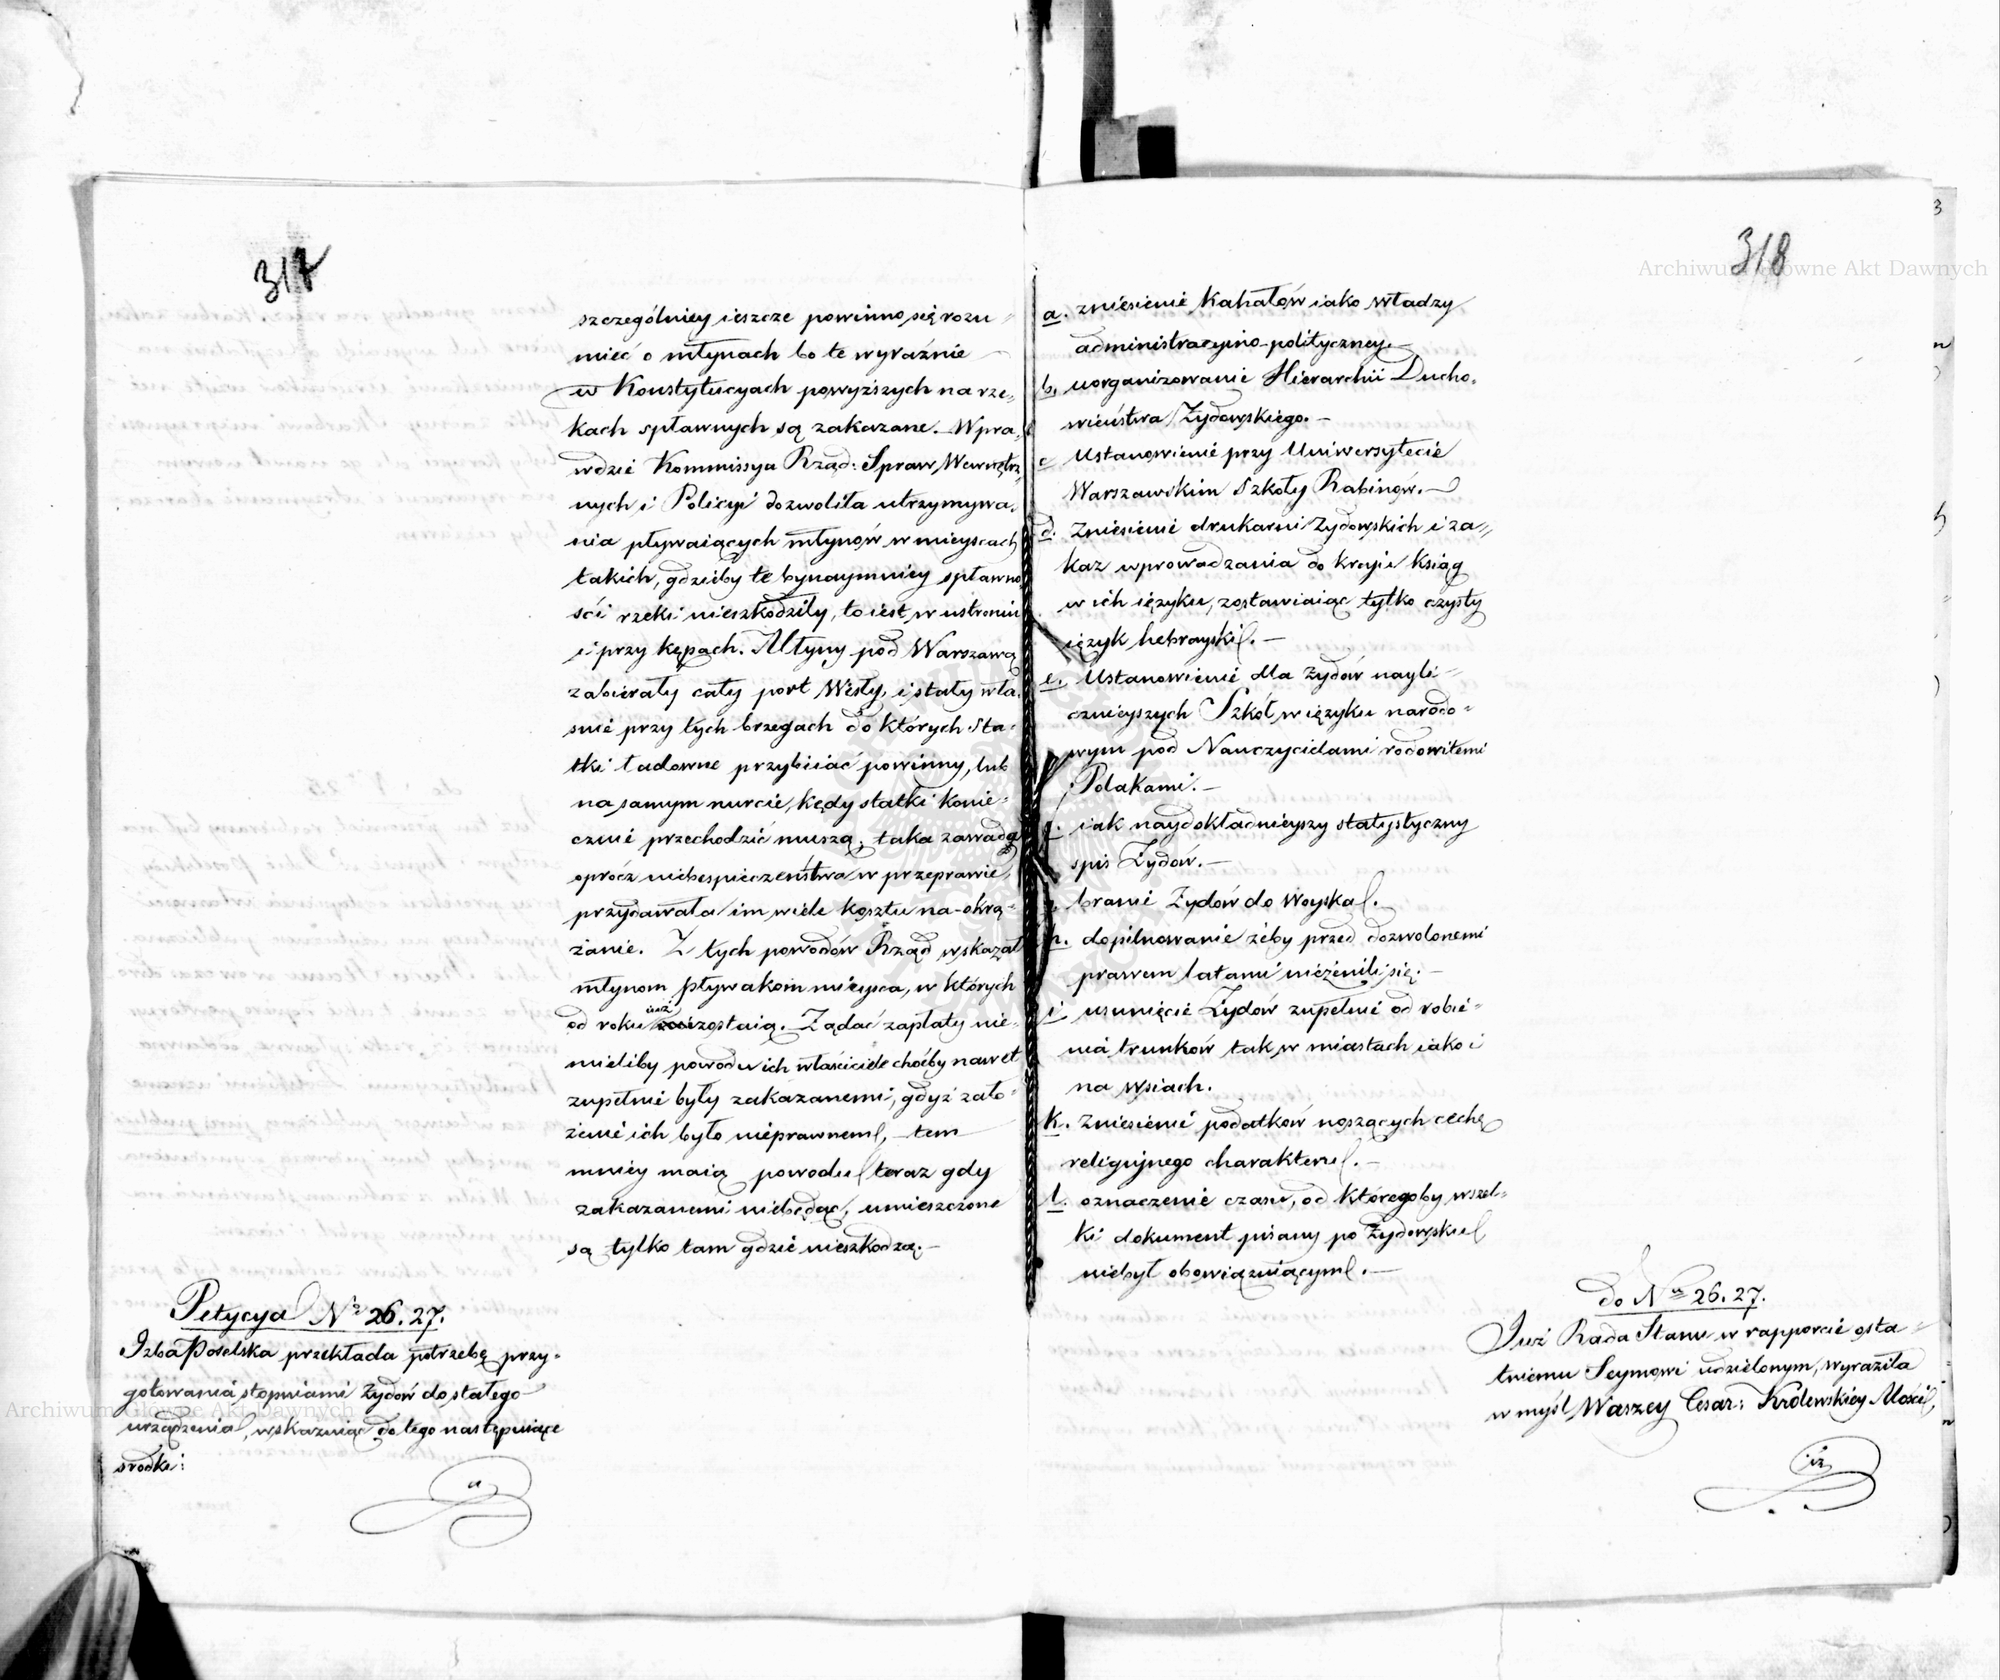 317
szczególniey ieszcze powinno się rozu=
mieć o młynach bo te wyraźnie
w Konstytucyach powyższych na rze=
kach spławnych są zakazane. Wpra=
wdzie Kommissya Rząd: Spraw Wewnętrz
nych i Policyi dozwoliła utrzymywa=
nia pływaiących młynów w mieyscach
takich, gdzieby te bynaymniey spławno
ści rzeki nieszkodziły, to iest, w ustroniu
i przy kępach. Młyny pod Warszawą
zabierały cały port Wisły, i stały wła=
snie przy tych brzegach do których sta=
tki ładowne przybiiać powinny, lub
na samym nurcie, kędy statki konie=
cznie przechodzić muszą, taka zawada
oprócz niebespieczeństwa w przeprawie,
przydawała im wiele kosztu na okrą=
żanie. Z tych powodów Rząd wskazał
młynom pływakom mieysca, w których
od roku iuż zostaią. Żądać zapłaty nie=
mieliby powodu ich właściciele choćby nawet
zupełnie były zakazanemi, gdyż zało=
żenie ich było nieprawnem, tem
mniey maią powodu teraz gdy
zakazanemi niebędąc, umieszczone
są tylko tam gdzie nieszkodzą.—
Petycya Nr 26. 27.
Izba Poselska przekłada potrzebę przy=
gotowania stopniami Żydów do stałego
urządzenia, wskazuiąc do tego następuiące
srodki:
a,
318
a. zniesienie Kahałów iako władzy
administracyino-polityczney.—
b. uorganizowanie Hierarchii Ducho=
wieństwa Żydowskiego.—
c Ustanowienie przy Uniwersytecie
Warszawskim Szkoły Rabinów.—
d. Zniesienie drukarni Żydowskich i za=
kaz wprowadzania do kraiu ksiąg
w ich ięzyku, zostawiaiąc tylko czysty
ięzyk hebrayski.—
e. Ustanowienie dla Żydów nayli=
cznieyszych Szkół w ięzyku narodo=
wym pod Nauczycielami rodowitemi
Polakami.—
f. iak naydokładnieyszy statystyczny
spis Żydów.—
branie Żydów do Woyska.—
h. dopilnowanie żeby przed dozwolonemi
prawem latami nieżenili się.—
i usunięcie Żydów zupełnie od robie=
nia trunków tak w miastach iako i
na wsiach.
k. Zniesienie podatków noszących cechę
religijnego charakteru.—
l. oznaczenie czasu, od któregoby wszel=
ki dokument pisany po Żydowsku
niebył obowiązuiącym.—
do Nru 26. 27.
Już Rada Stanu w rapporcie osta=
tniemu Seymowi udzielonym, wyraziła
w myśl Waszey Cesar: Królewskiey Mości,
iż
Archiwum Główne Akt Dawnych
Archiwum Główne Akt Dawnych